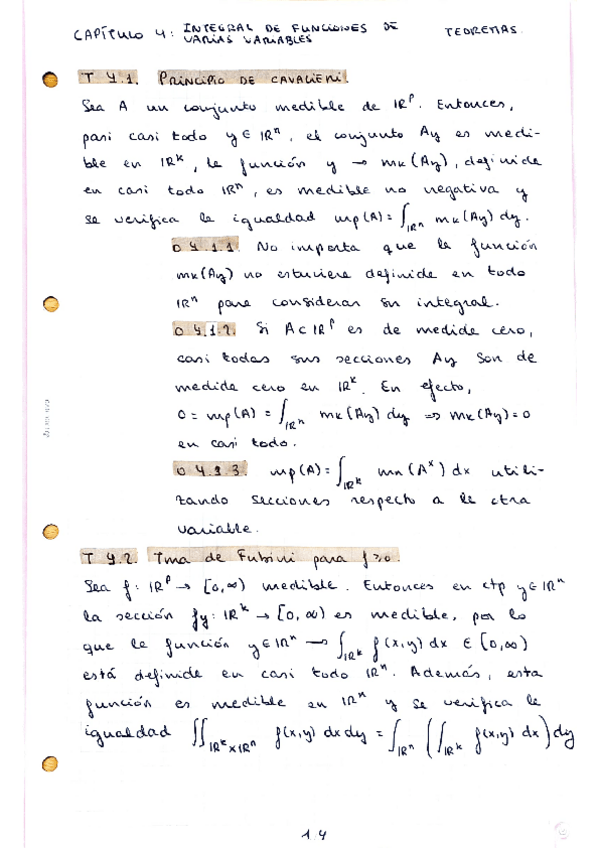 CAPÍTULO 4: INTEGRAL DE FUNCIONES DE VARIAS VARIABLES TEOREMAS.
T 4.1. PRINCIPIO DE CAVALIERI.
Sea A un conjunto medible de ℝᵖ. Entonces,
pasi casi todo y ∈ ℝⁿ, el conjunto Ay es medi-
ble en ℝᵏ, la función y → mk(Ay), definida
en casi todo ℝⁿ, es medible no negativa y
se verifica la igualdad mp(A) = ∫ℝⁿ mk(Ay) dy.
O 4.1.1. No importa que la función
mk(Ay) no estuviera definida en todo
ℝⁿ para considerar su integral.
O 4.1.2. Si A ⊂ ℝᵖ es de medida cero,
casi todas sus secciones Ay son de
medida cero en ℝᵏ. En efecto,
0 = mp(A) = ∫ℝⁿ mk(Ay) dy ⇒ mk(Ay) = 0
en casi todo.
O 4.1.3. mp(A) = ∫ℝᵏ mn(Aˣ) dx utili-
zando secciones respecto a la otra
variable.
T 4.2. Tma de Fubini para f ≥ 0.
Sea f: ℝᵖ → [0,∞) medible. Entonces en ctp y ∈ ℝⁿ
la sección fy: ℝᵏ → [0,∞) es medible, por lo
que la función y ∈ ℝⁿ → ∫ℝᵏ f(x,y) dx ∈ [0,∞)
está definida en casi todo ℝⁿ. Además, esta
función es medible en ℝⁿ y se verifica la
igualdad ∬ℝᵏ×ℝⁿ f(x,y) dx dy = ∫ℝⁿ (∫ℝᵏ f(x,y) dx) dy
1.4